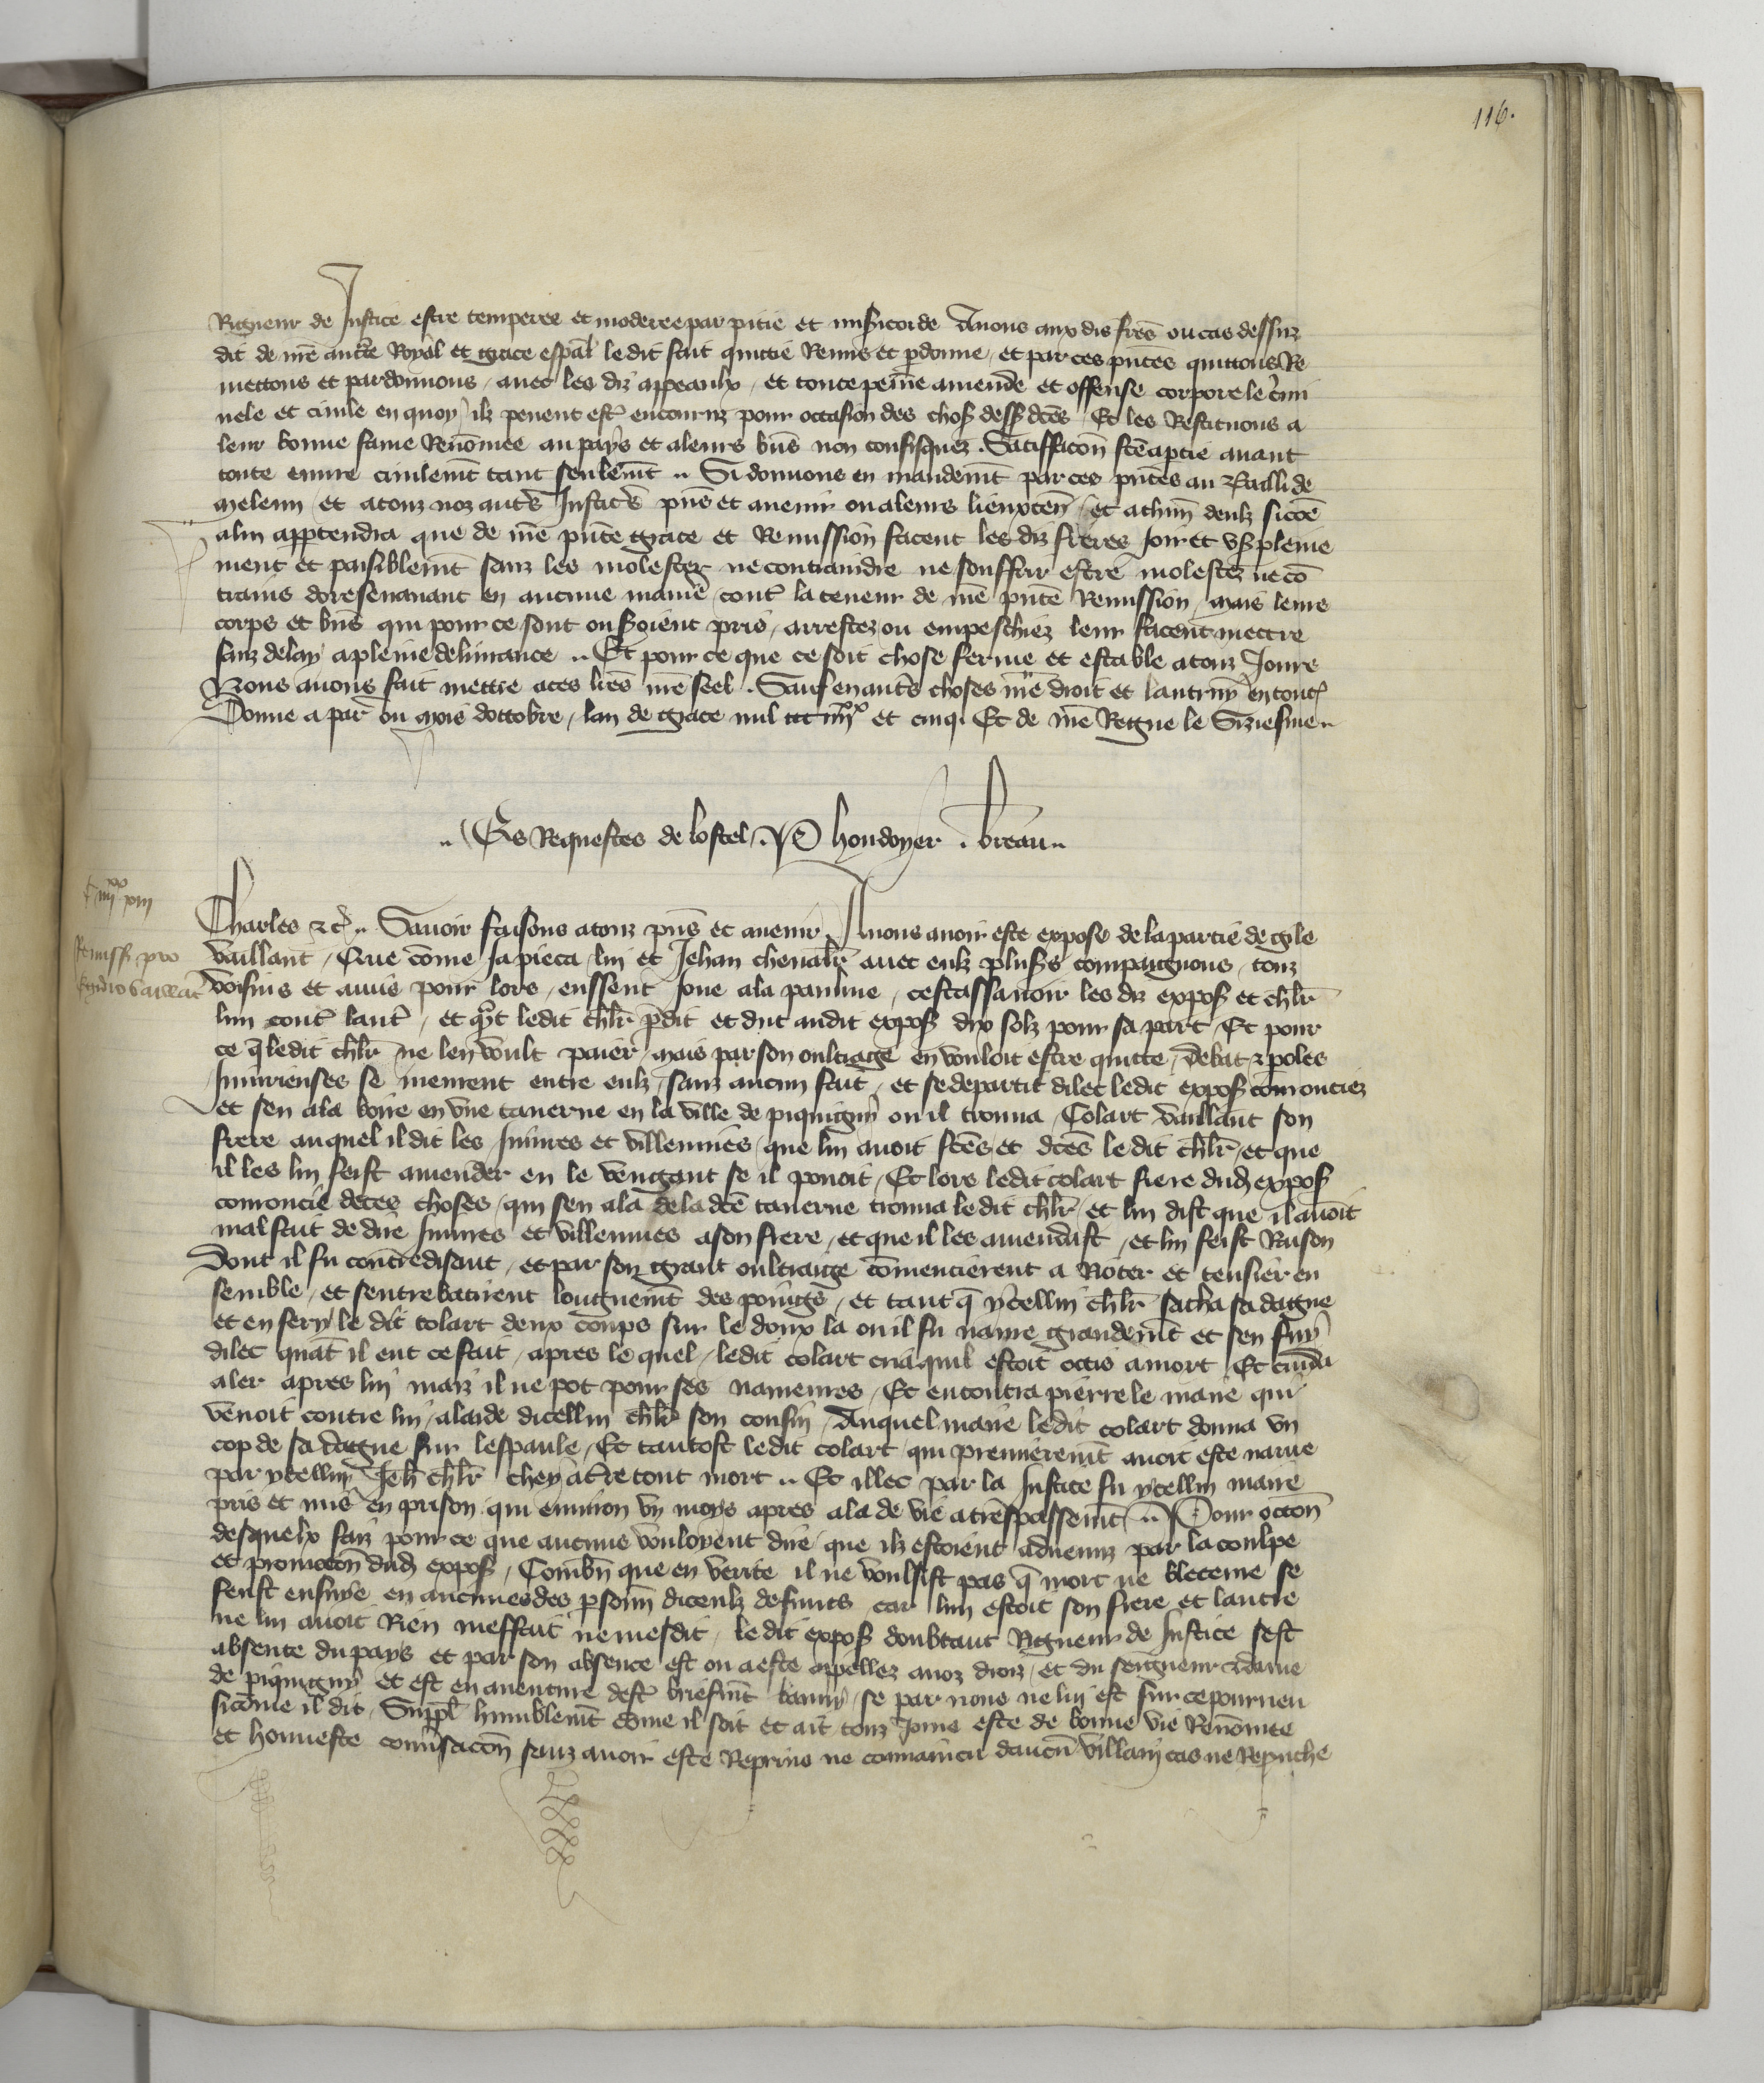 116.
Rigueur de Justice estre temperee et moderee par pitie et misericorde Avons aux dis freres ou cas dessus
dit de nre aucte Royal et grace espal le dit fait quittie Remis et pdonne, et par ces pntes quittons Re
mettons et pardonnons, avec les diz appeaulx, et toute peine amende et offense corporele cimi
nele et civile en quoy ilz pevent estre encouruz pour occasion des choses dessus dctes, Et les Restituons a
leur bonne fame Renommee au pays et a leurs biens non confisquez. Satisfaccion fcte a ptie avant
toute euvre civilemt tant seulemt. Si donnons en mandemt par ces pntes au Bailli de
Meleun, et a touz noz autres Justiciers pns et avenir ou a leurs lieuxten et a chun deulz sicoe
a lui apptendra que de nre pnte grace et Remission facent les diz freres Joir et user pleine
ment et paisiblemt sanz les molester ne contraindre ne souffrir estre molestez ne con
trains doresenavant en aucune maniere contre la teneur de nre pnte Remission, mais leurs
corps et biens qui pour ce sont ou seroient pris, arrestez ou empeschiez leur facent mettre
sanz delay a pleine delivrance. Et pour ce que ce soit chose ferme et estable a touz Jours
Nous avons fait mettre a ces lres nre seel. Sauf en autres choses nre droit et lautruy en toutes
Donne a Paris ou mois doctobre, lan de grace mil ccc iiiixx et cinq. Et de nre Regne le Siziesme.
Es Requestes de lostel. P houdoyer. breau.
c iiiixx xiii
Remissio pro
Egidio vaillant
Charles etc. Savoir faisons a touz pns et avenir A nous avoir este expose de la partie de Gile
Vaillant, Que come Ja pieca, lui et Jehan chevalier avec eulz plusrs compaignons, touz
voisins et amis pour lors, eussent Joue a la paume, cest assavoir les diz exposant et chlr
lun contre lautre, et quant ledit chlr pdit et dut audit exposant dix solz pour sa part, Et pour
ce que ledit chlr ne len voult paier, mais par son oultrage en vouloit estre quitte, debat et poles
Injurieuses se meurent entre eulz, sanz aucun fait, et se departit dilec ledit exposant comoutiez
et sen ala boire en une taverne en la ville de piquigny ou il trouva, Colart vaillant son
frere auquel il dit les Injures et villennies que lui avoit fctes et dctes le dit chlr, et que
il les lui feist amender en le vengant se il povoit, Et lors ledit colart frere dud exposant
comoutie de ces choses, qui sen ala de la dcte taverne trouva le dit chlr, et lui dist que il avoit
mal fait de dire Injures et villennies a son frere, et que il les amendast, et lui feist Raison
Dont il fu contredisant, et par son grant oultrage comencierent a Roter et tensier en
semble, et sentrebatirent longuemt des poings, et tant que ycellui chlr sacha sa dague
et en fery le dit colart deux coups sur le doux la ou il fu navre grandemt et sen fuy
dilec quant il eut ce fait, apres le quel, ledit colart cria quil estoit occis a mort, Et cuida
aler apres lui mais il ne pot pour ses navreures, Et encontra pierre le maire qui
venoit contre lui, a laide dicellui chlr son cousin, Auquel maire ledit colart donna un
cop de sa dague sur lespaule, Et tantost ledit colart qui premieremt avoit este navre
par ycellui Jeh chlr chey a tre tout mort. Et illec par la Justice fu ycellui maire
pris et mis en prison qui environ un moys apres ala de vie a trespassemt. Pour occon
desquelx faiz pour ce que aucuns vouloyent dire que ilz estoient advenuz par la coulpe
et promocon dud exposant, Combn que en verite il ne voulsist pas que mort ne bleceure se
feust ensuye en aucunes des psonnes diceulz defuncts, car lun estoit son frere et lautre
ne lui avoit Rien meffait ne mesdit, le dit exposant doubtant Rigueur de Justice sest
absente du pays et par son absence est ou a este appellez a noz droiz, et du seigneur et dame
de piquigny et est en aventure destre briefmt banny, se par nous ne lui est sur ce pourveu
sicome il dit, Suppl humblemt come il soit et ait touz Jours este de bonne vie Renommee
et honneste conversacon sanz avoir este Reprins ne convaincu daucun villain cas ne Reprouche